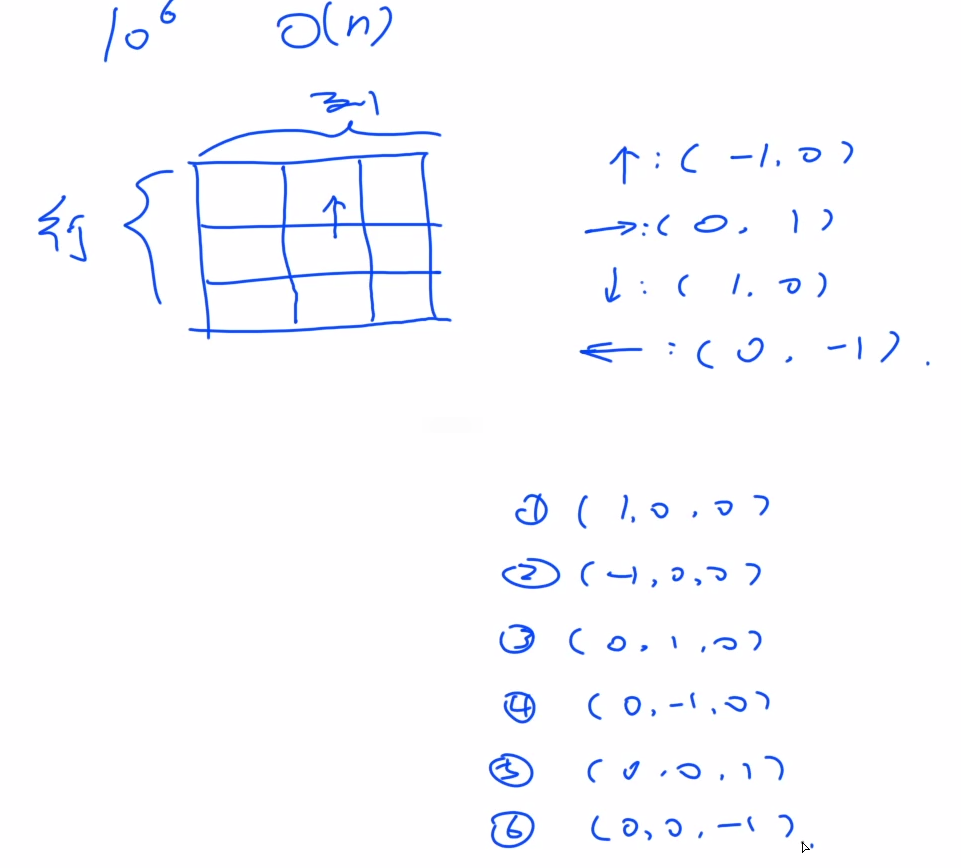 10⁶ O(n)
行
↑:(-1,0)
→:(0,1)
↓:(1,0)
←:(0,-1).
① (1,0,0)
② (-1,0,0)
③ (0,1,0)
④ (0,-1,0)
⑤ (0,0,1)
⑥ (0,0,-1).